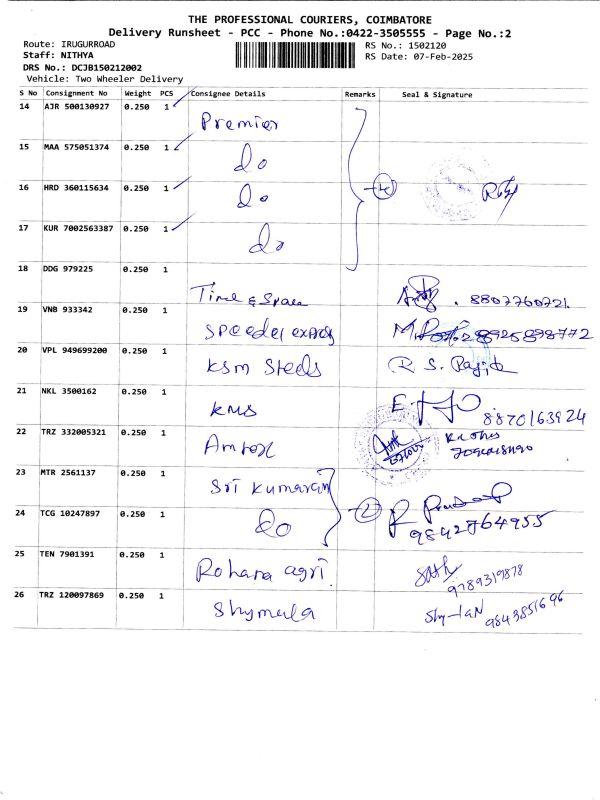 THE PROFESSIONAL COURIERS, COIMBATORE
Delivery Runsheet - PCC - Phone No.:0422-3505555 - Page No.:2
Route: IRUGURROAD
RS No.: 1502120
Staff: NITHYA
RS Date: 07-Feb-2025
DRS No.: DCJB150212002
Vehicle: Two Wheeler Delivery
S No Consignment No Weight PCS Consignee Details Remarks Seal & Signature
14 AJR 500130927 0.250 1 Premier
15 MAA 575051374 0.250 1 do
16 HRD 360115634 0.250 1 do
17 KUR 7002563387 0.250 1 do
18 DDG 979225 0.250 1 Time & Space 8807760721
19 VNB 933342 0.250 1 Speeder express 8925898772
20 VPL 949699200 0.250 1 KSM Steels R. S.
21 NKL 3500162 0.250 1 KMS 8870163924
22 TRZ 332005321 0.250 1
23 MTR 2561137 0.250 1 Sri Kumaran
24 TCG 10247897 0.250 1 do 9842764955
25 TEN 7901391 0.250 1 Rohana agri 9789319878
26 TRZ 120097869 0.250 1 Shymala 9843851696